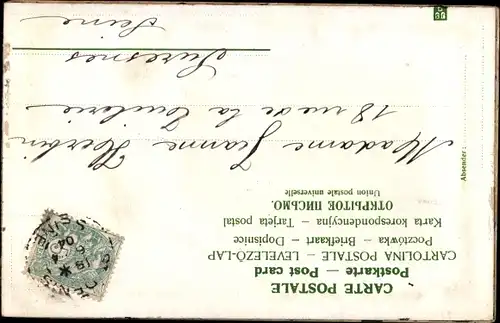 CARTE POSTALE
Postkarte — Post card
CARTOLINA POSTALE — LEVELEZŐ-LAP
Pocztówka — Briefkaart — Dopisnice
Karta korespondencyjna — Tarjeta postal
ОТКРЫТОЕ ПИСЬМО.
Union postale universelle
Absender:
Madame Jeanne Herbin
18 rue de la Tuilerie
Suresnes
Seine
ST DENIS
SEINE
04